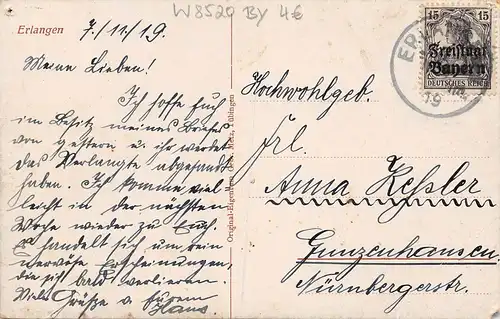 W8520 BY 4€
Erlangen
7./11./19.
Meine Lieben!
Ich hoffe Euch
im Besitz meines Briefes
von gestern u. ihr werdet
das Verlangte abgesandt
haben. Ich komme viel-
leicht in der nächsten
Woche wieder zu Euch.
Es handelt sich um rein
nervöse Erscheinungen,
die sich bald verlieren.
Viele Grüße v. Eurem
Hans.
Original-Eigentum Metz, Tübingen
15 15
Freistaat
Bayern
DEUTSCHES REICH
ER
19
Hochwohlgeb.
Frl.
Anna Keßler
Gunzenhausen
Nürnbergerstr.